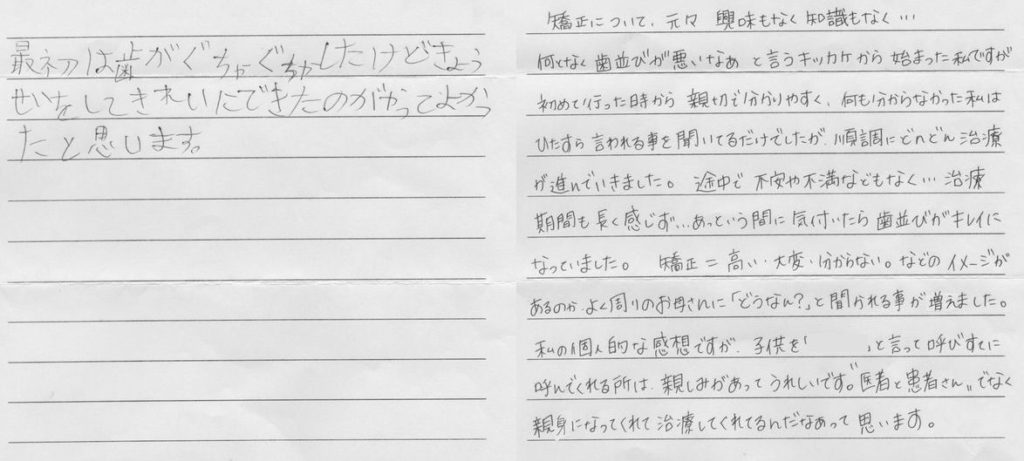 最初は歯がぐちゃぐちゃしたけどきょう
せいをしてきれいにできたのがやってよかっ
たと思います。
矯正について、元々 興味もなく知識もなく…
何となく歯並びが悪いなぁ と言うキッカケから 始まった私ですが
初めて行った時から 親切で分かりやすく、何も分からなかった私は
ひたすら 言われる事を聞いてるだけでしたが、順調にどんどん治療
が進んでいきました。 途中で 不安や不満などもなく… 治療
期間も長く感じず…あっという間に 気付いたら歯並びがキレイに
なっていました。 矯正=高い・大変・分からない。などの イメージが
あるのか よく周りのお母さんに「どうなん?」と聞かれる事が増えました。
私の個人的な感想ですが、子供を「 」と言って呼びすてに
呼んでくれる所は、親しみがあって うれしいです。"医者と患者さん〟でなく
親身になってくれて 治療してくれてるんだなあって 思います。